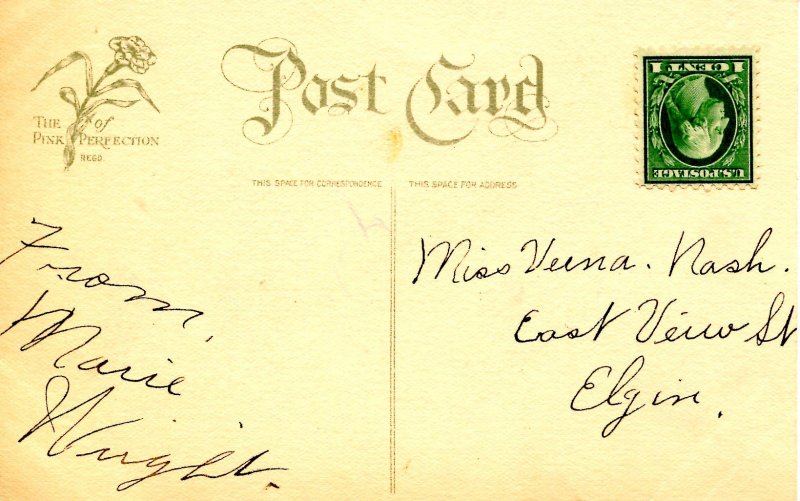 THE of
PINK PERFECTION
REGD.
Post Card
1 CENT 1
U.S. POSTAGE
THIS SPACE FOR CORRESPONDENCE
THIS SPACE FOR ADDRESS
From,
Marie
Wright.
Miss Verna. Nash.
East View St
Elgin.